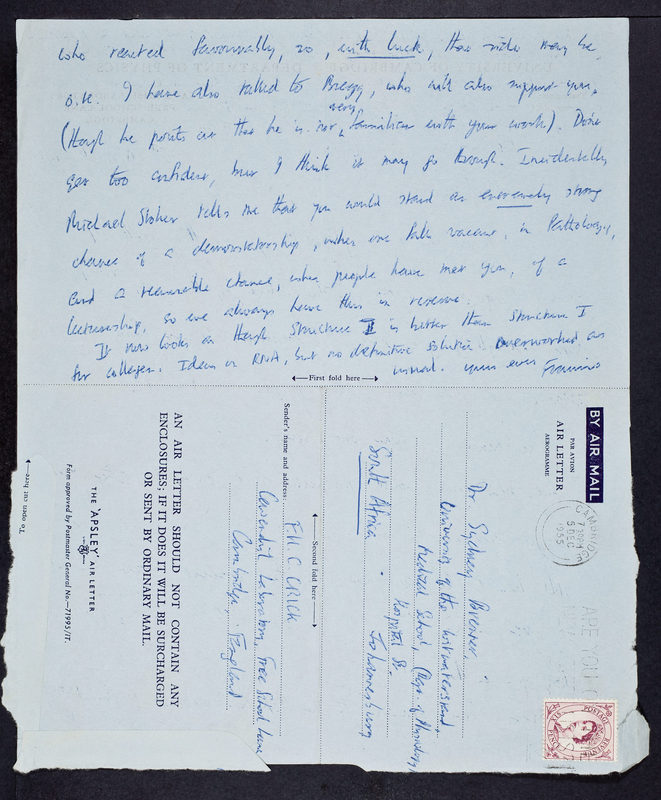 who reacted favourably, so, with luck, this side may be
o.k. I have also talked to Bragg, who will also support you,
very
(though he points out that he is not familiar with your work). Don't
get too confident, but I think it may go through. Incidentally
Michael Stoker tells me that you would stand an extremely strong
chance of a demonstratorship, when one falls vacant, in Pathology,
and a reasonable chance, when people have met you, of a
lectureship, so we always have this in reserve.
It now looks as though Structure II is better than Structure I
for collagen. Ideas on RNA, but no definitive solution. Overworked as
usual. yours ever Francis
First fold here
BY AIR MAIL
PAR AVION
AIR LETTER
AEROGRAMME
CAMBRIDGE
7 30PM
5 DEC
1955
ARE YOU
POSTAGE
REVENUE
SIXPENCE
Dr Sydney Brenner,
University of the Witwatersrand,
Medical School, (Dept. of Physiology)
Hospital St.
Johannesburg
South Africa
Second fold here
Sender's name and address:
F H C CRICK
Cavendish Laboratory, Free School Lane
Cambridge, England
AN AIR LETTER SHOULD NOT CONTAIN ANY
ENCLOSURES; IF IT DOES IT WILL BE SURCHARGED
OR SENT BY ORDINARY MAIL.
THE 'APSLEY' AIR LETTER
Form approved by Postmaster General No.—71995/1T.
To open cut here